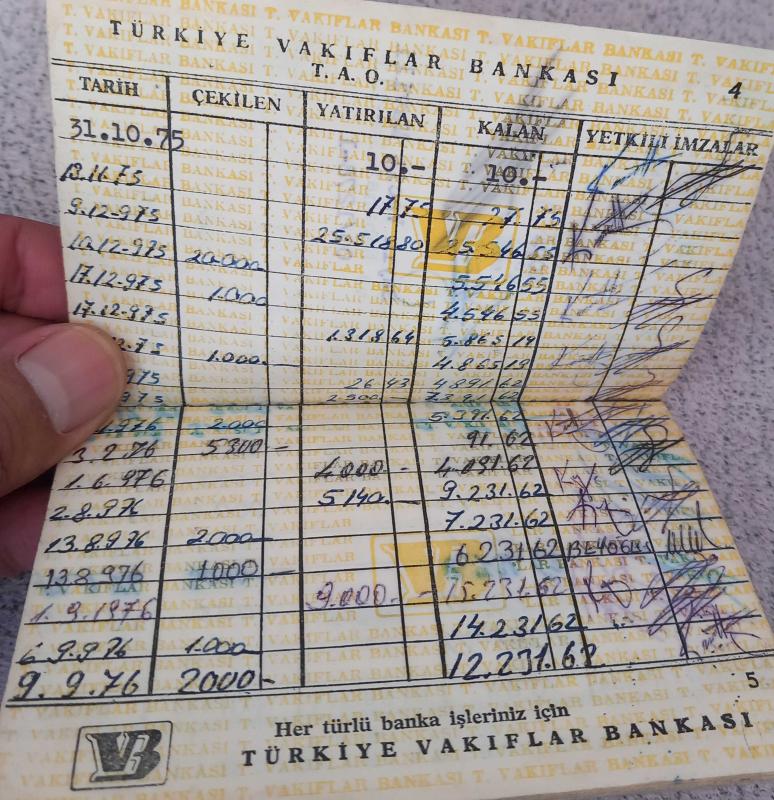 TÜRKİYE VAKIFLAR BANKASI
T. A. O.
4
TARİH ÇEKİLEN YATIRILAN KALAN YETKİLİ İMZALAR
31.10.75 10.- 10.-
17 75 27. 75
9.12.975 25.518 80 25.546 55
10.12.975 20.000 5.546 55
17.12.975 1.000 4.546 55
17.12.975 1.318 64 5.865 19
1.000.- 4.865 19
975 26 43 4891 62
2500 7391 62
976 2.000 5.391.62
3.2.76 5300 - 91.62
1.6.976 4.000 - 4.091.62
2.8.976 5140.- 9.231.62
13.8.976 2000 7.231.62
13.8.976 1000 6.231 62
1.9.1976 9.000.- 15.231.62
6.9.976 1.000 14.231 62
9.9.76 2000- 12.231.62
5
VB
Her türlü banka işleriniz için
TÜRKİYE VAKIFLAR BANKASI